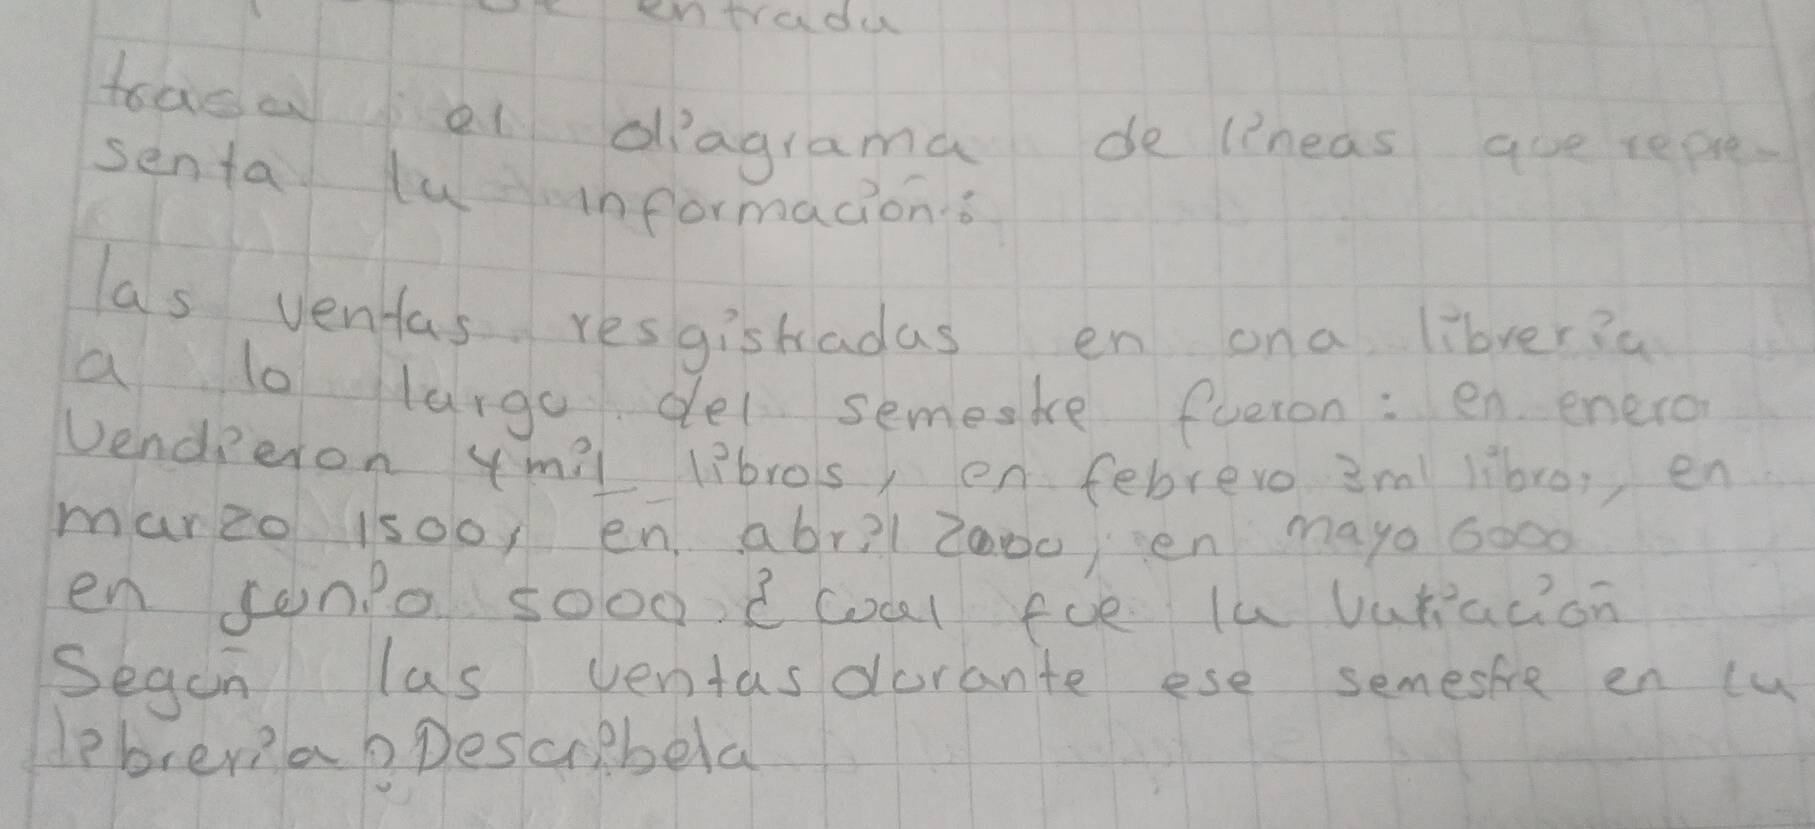 entrada
trasa el diagrama de líneas que repre-
senta la información:
las ventas resgistradas en una librería
a lo largo del semestre fueron: en enero
Vendieron 4 mil libros, en febrero 3 mil libros, en
marzo 1500, en abril 2000, en mayo 6000
en junio 5000. ¿cual fue la variación
Según las ventas durante ese semestre en la
librería? Descríbela